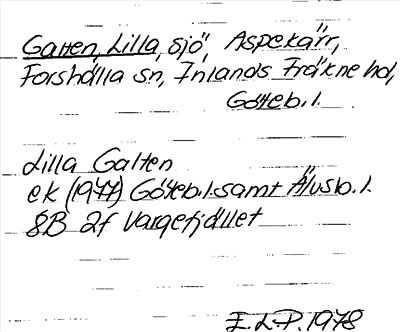 Galten, Lilla, sjö, Aspekärr,
Forshälla sn, Inlands Fräkne hd,
Göteb. l.
Lilla Galten
ek (1977) Göteb. l. samt Älvsb. l.
8B 2f Vargefjället
E.L.P. 1978